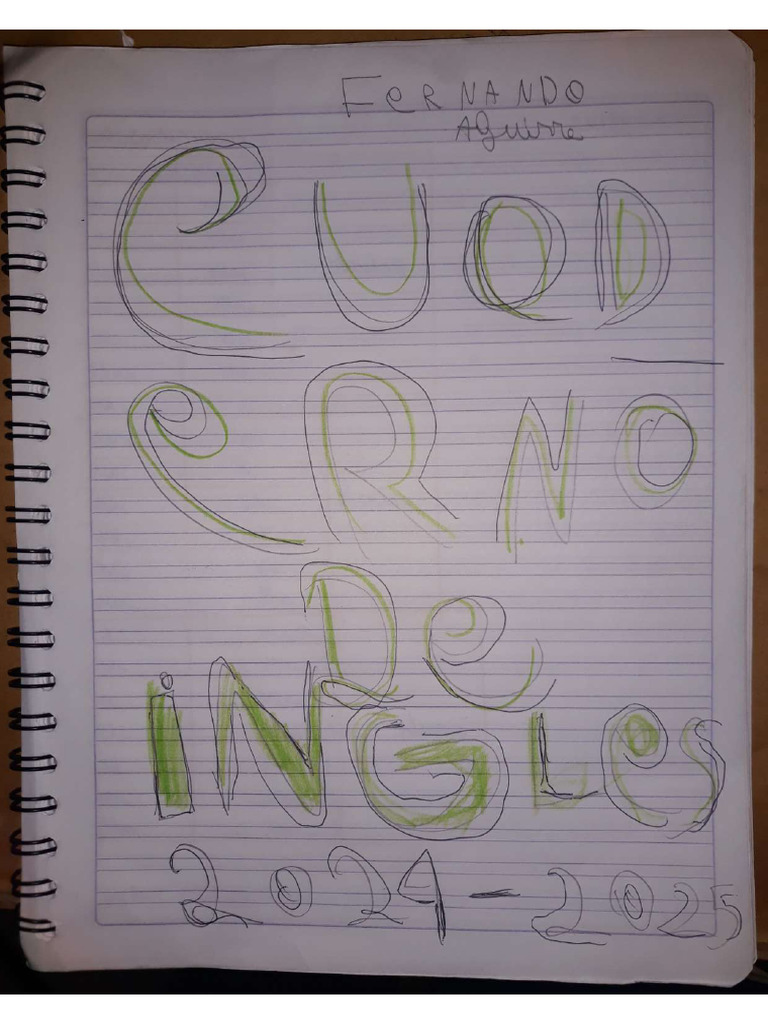 FeRNANDO
Aguirre
CUOD
eRNO
De
iNGLeS
2024-2025